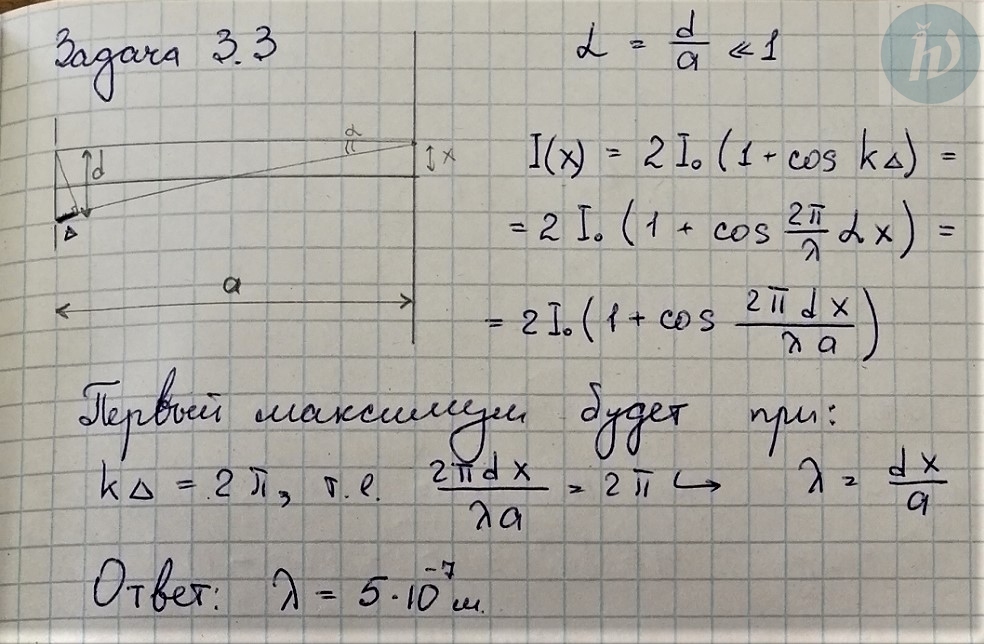 Задача 3.3
α = d/a ≪ 1
d
α
x
Δ
a
I(x) = 2 I₀ (1 + cos kΔ) =
= 2 I₀ (1 + cos 2π/λ α x) =
= 2 I₀ (1 + cos 2π d x / λ a)
Первый максимум будет при:
kΔ = 2π, т.е. 2π d x / λ a = 2π ↪ λ = d x / a
Ответ: λ = 5·10⁻⁷ м.